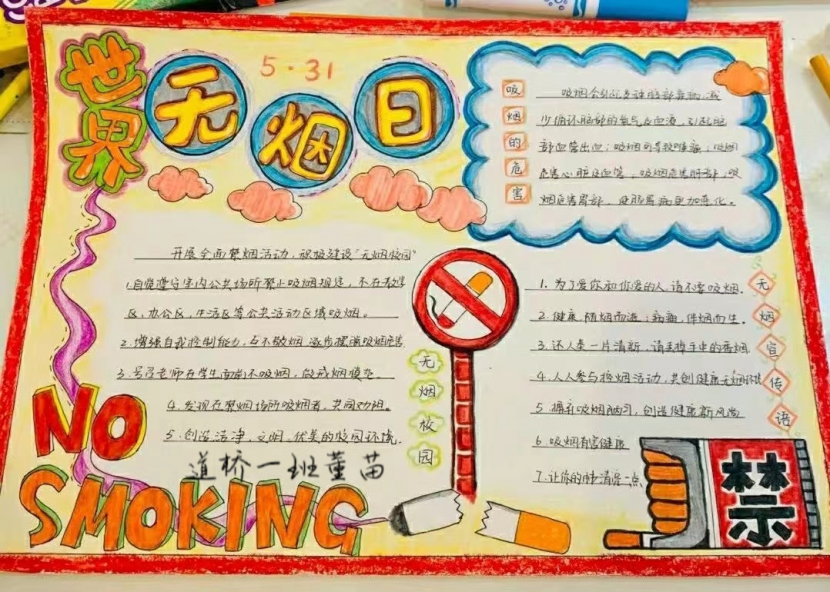 世界
无烟日
5·31
吸烟的危害
吸烟会引
少循环脑部的氧气及血液，引起脑
部血管出血；吸烟可导致喉癌；吸烟
危害心脏及血管，吸烟危害肝部，吸
烟危害胃部，使肠胃病更加恶化。
开展全面禁烟活动，积极建设“无烟校园”
1.自觉遵守室内公共场所禁止吸烟规定，不在教学
区、办公区、生活区等公共活动区域吸烟。
2.增强自我控制能力，互不敬烟 逐步摆脱吸烟
3.号召老师在学生面前不吸烟，做戒烟模范。
4.发现在禁烟场所吸烟者，共同劝阻。
5.创造洁净、文明、优美的校园环境。
无烟校园
1.为了爱你和你爱的人，请不要吸烟。
2.健康，随烟而逝；病痛，伴烟而生。
3.还人类一片清新，请丢掉手中的香烟
4.人人参与控烟活动，共创健康无烟环境
5.摒弃吸烟陋习，创造健康新风尚
6.吸烟有害健康
7.让你的肺清湿一点
无烟宣传语
道桥一班董苗
NO
SMOKING
禁